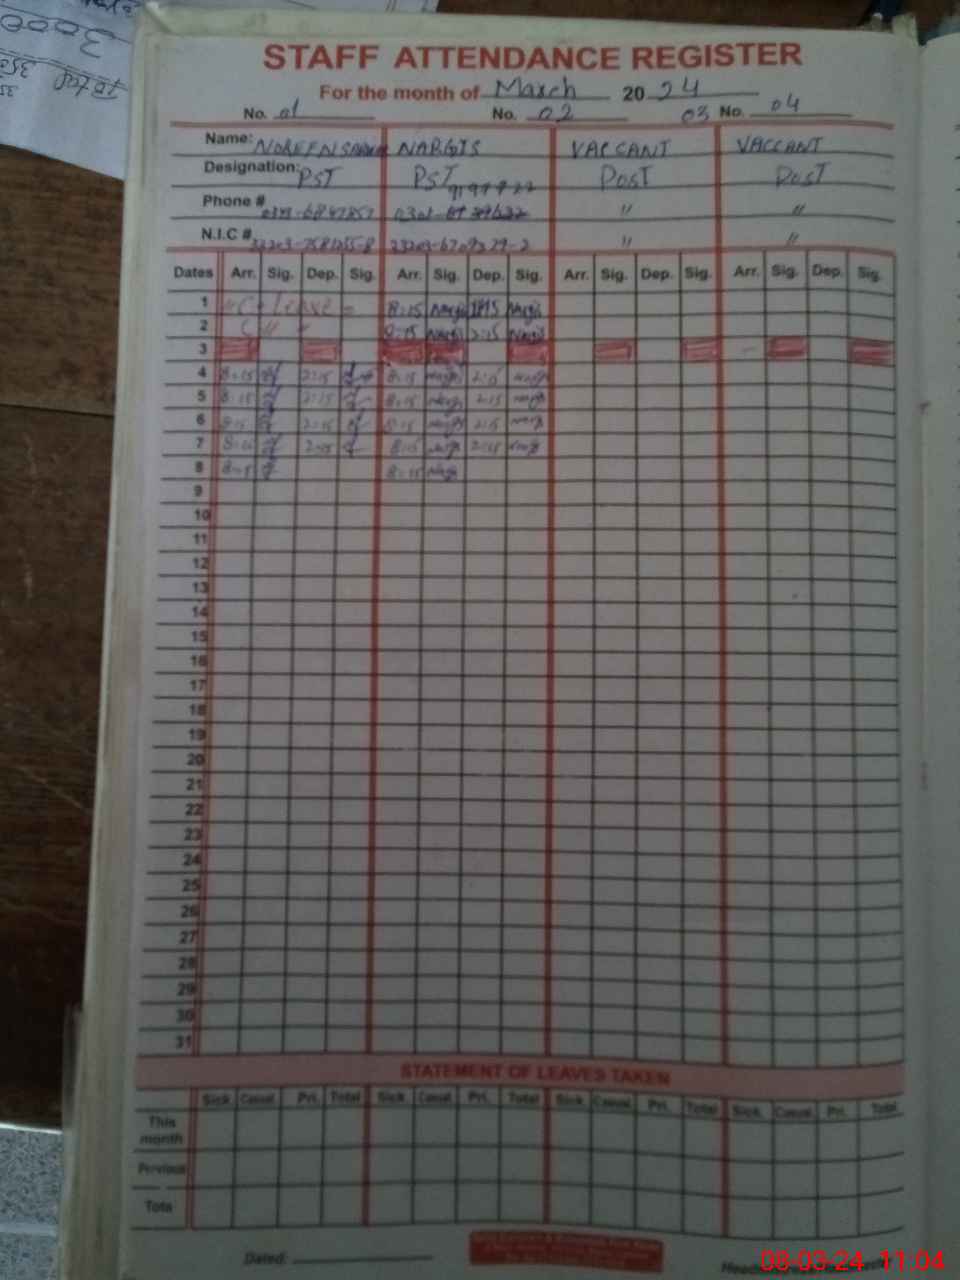 3000
Total 350
STAFF ATTENDANCE REGISTER
For the month of March 2024
No. 01 No. 02 03 No. 04
Name: NOREEN NARGIS VACCANT VACCANT
Designation: PST PST POST POST
9197722
Phone # 0301- " "
N.I.C # 33203-6709329-2 " "
Dates Arr. Sig. Dep. Sig. Arr. Sig. Dep. Sig. Arr. Sig. Dep. Sig. Arr. Sig. Dep. Sig.
1 C - Leave - 8:15 Nargis Nargis
2 C " " 8:15 Nargis 2:15 Nargis
3
4 8:15 2:15 8:15 Nargis 2:15 Nargis
5 8:15 2:15 8:15 Nargis 2:15 Nargis
6 8:15 2:15 8:15 Nargis 2:15 Nargis
7 8:15 2:15 8:15 Nargis 2:15 Nargis
8 8:15 8:15 Nargis
9
10
11
12
13
14
15
16
17
18
19
20
21
22
23
24
25
26
27
28
29
30
31
STATEMENT OF LEAVES TAKEN
Sick Casual Pri. Total Sick Casual Pri. Total Sick Casual Pri. Total Sick Casual Pri. Total
This month
Previous
Tota
Dated:
08-03-24 11:04